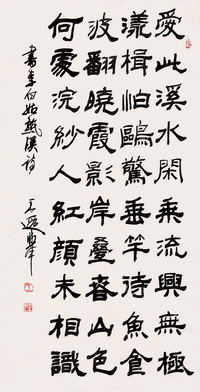 愛此溪水閑乘流興無極
漾楫怕鷗驚垂竿待魚食
波翻曉霞影岸疊春山色
何處浣紗人紅顏未相識
書李白姑熟溪詩 王遐舉